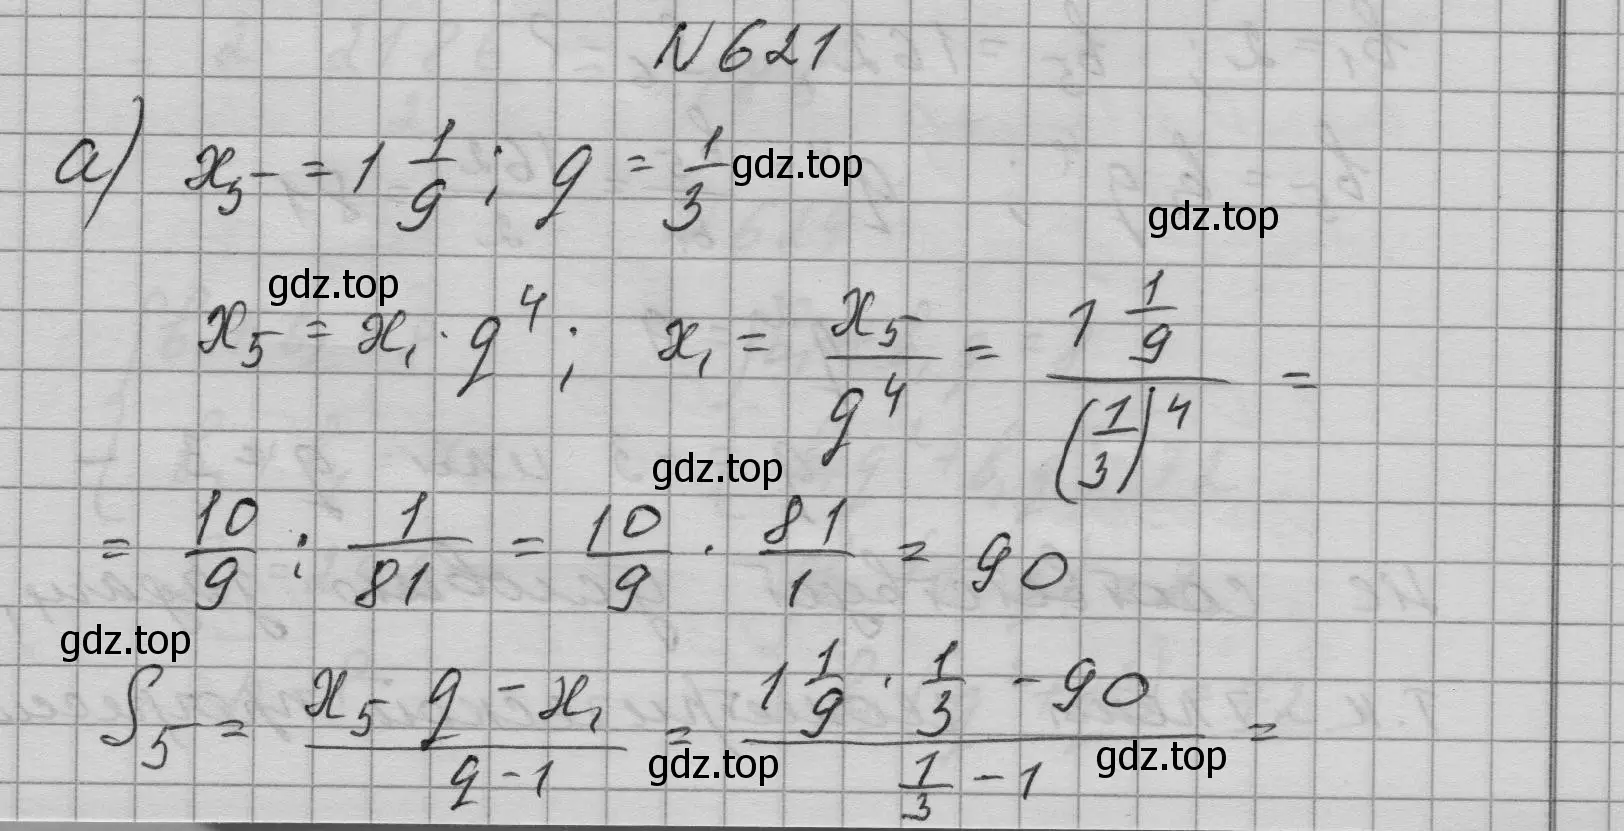 N 621
а) x₅ = 1 1/9 ; q = 1/3 gdz.top
gdz.top
gdz.top
x₅ = x₁ · q⁴ ; x₁ = x₅/q⁴ = (1 1/9)/(1/3)⁴ =
gdz.top
= 10/9 : 1/81 = 10/9 · 81/1 = 90
gdz.top
S₅ = (x₅ q - x₁)/(q - 1) = (1 1/9 · 1/3 - 90)/(1/3 - 1) =
gdz.top gdz.top